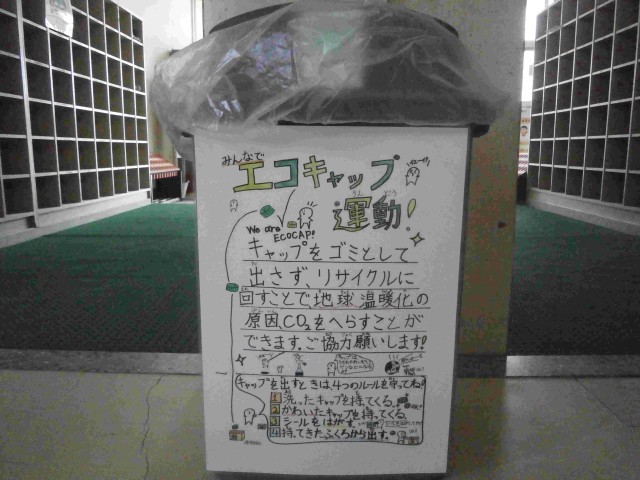 みんなで
エコキャップ
運動!
うん どう
We are
ECOCAP!
キャップをゴミとして
出さず、リサイクルに
回すことで地球温暖化の
原因CO2をへらすことが
できます。ご協力願いします!
キャップを出すときは、4つのルールを守ってね!
1 洗ったキャップを持てくる。
2 かわいたキャップを持てくる。
3 シールをはがす。
4 持てきたふくろから出す。